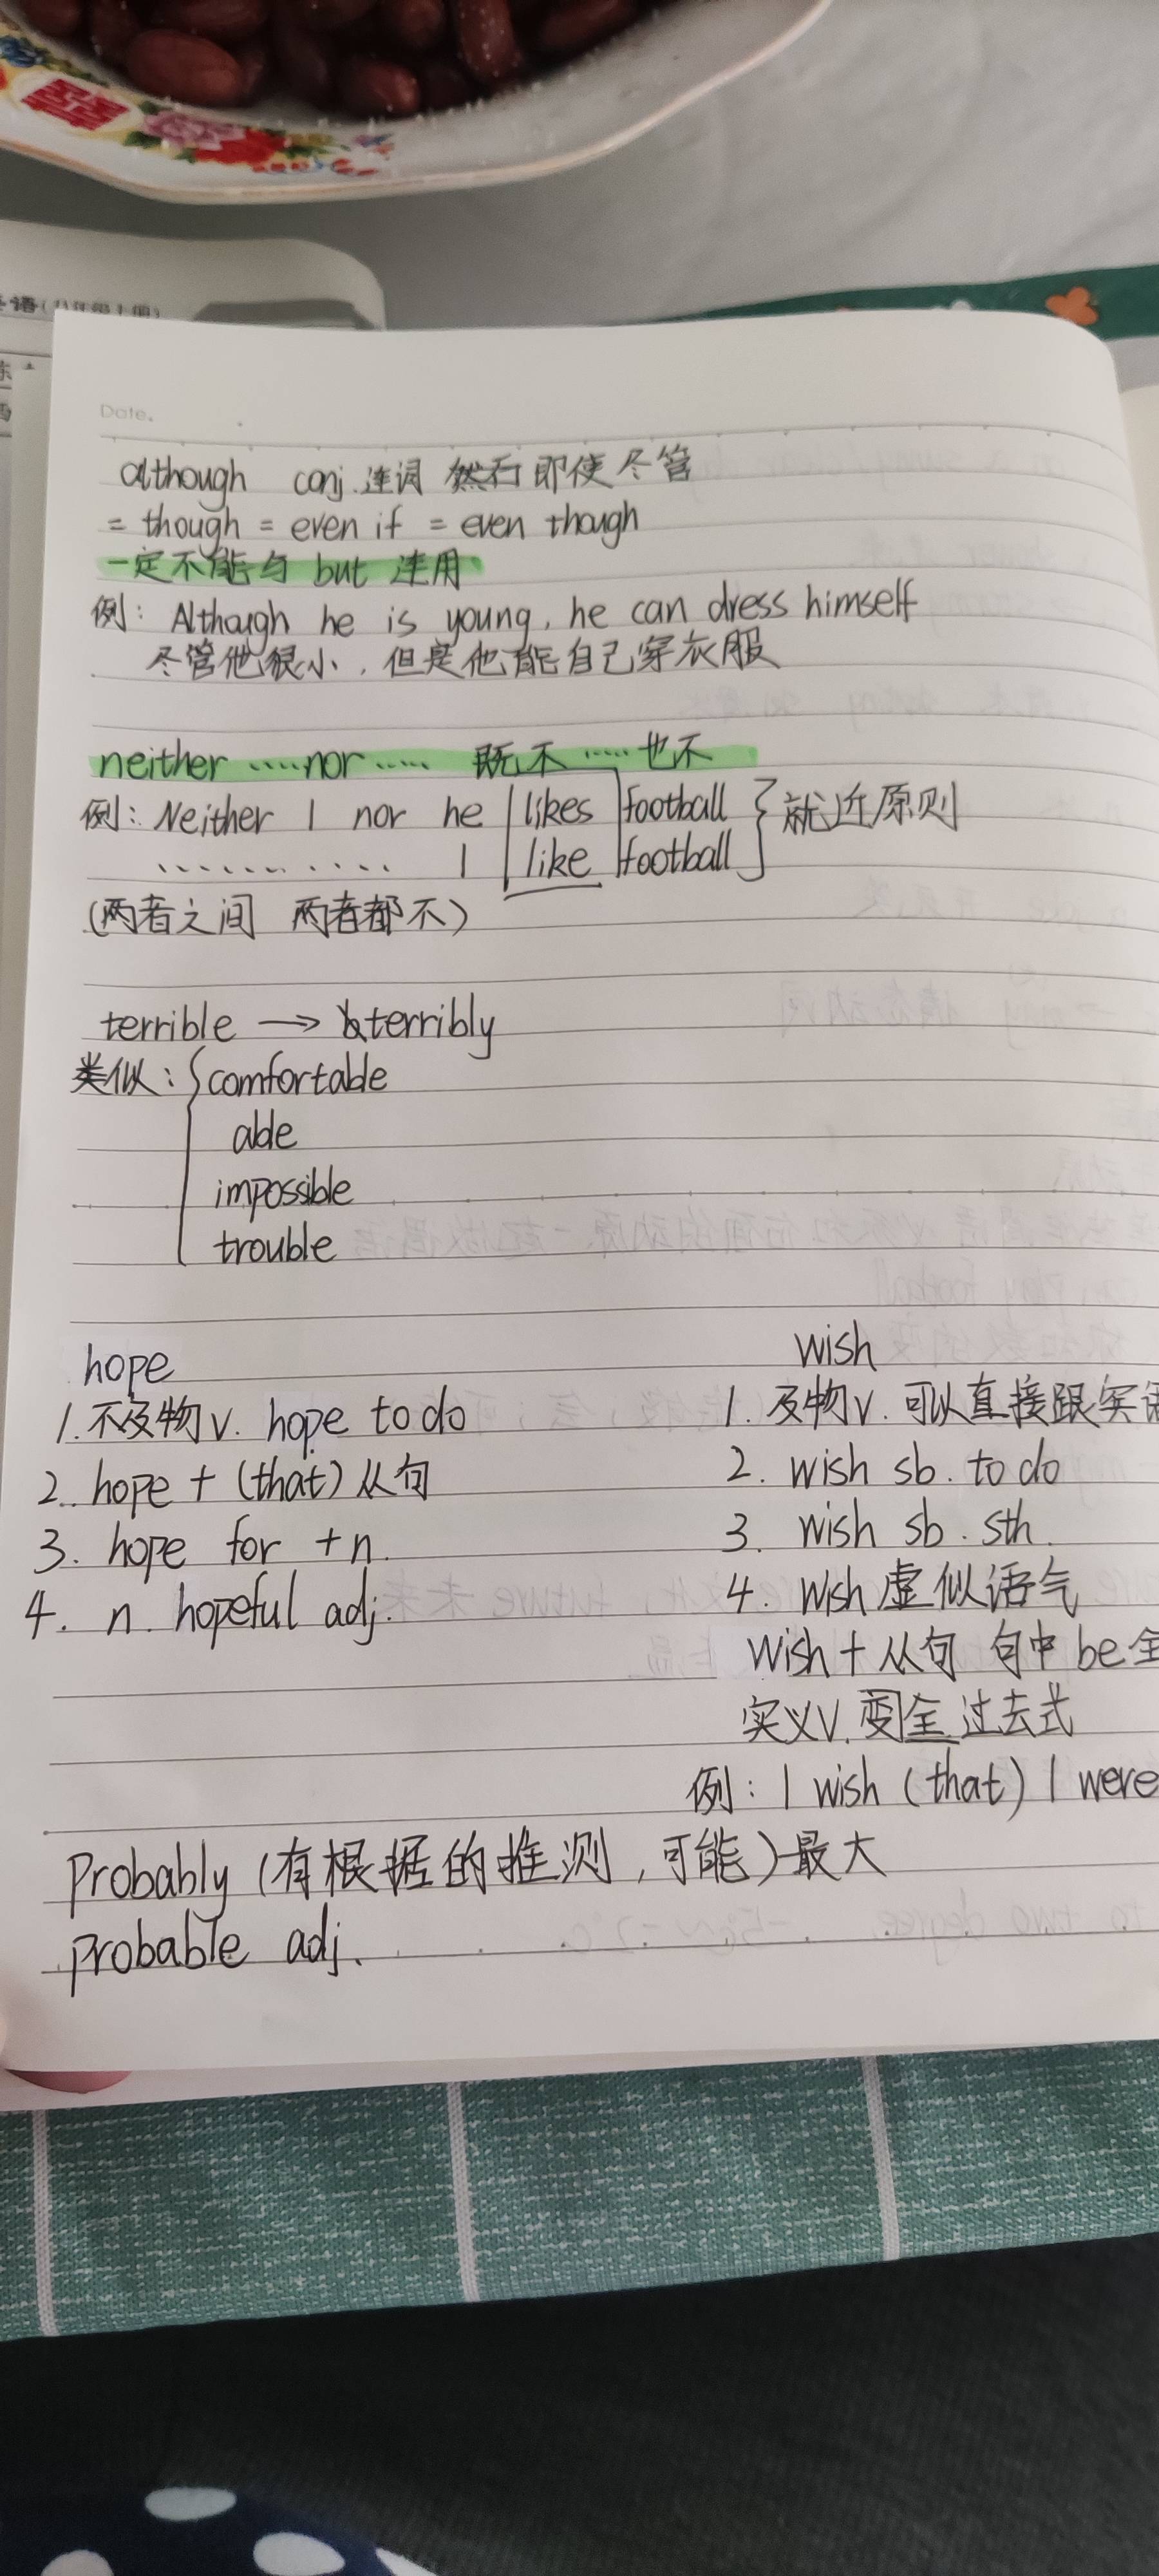 语(八年级上册)
Date.
although conj. 连词 然而 即使 尽管
= though = even if = even though
一定不能与 but 连用
例: Although he is young, he can dress himself
尽管他很小, 但是他能自己穿衣服
neither ……nor…… 既不……也不
例: Neither I nor he likes football } 就近原则
………… I like football
(两者之间 两者都不)
terrible → terribly
类似: { comfortable
able
impossible
trouble
hope
1. 不及物v. hope to do
2. hope + (that) 从句
3. hope for + n.
4. n. hopeful adj.
wish
1. 及物v. 可以直接跟宾语
2. wish sb. to do
3. wish sb. sth.
4. wish 虚似语气
wish + 从句 句中 be 全
实义v. 要全 过去式
例: I wish (that) I were
Probably (有根据的推测, 可能) 最大
probable adj.